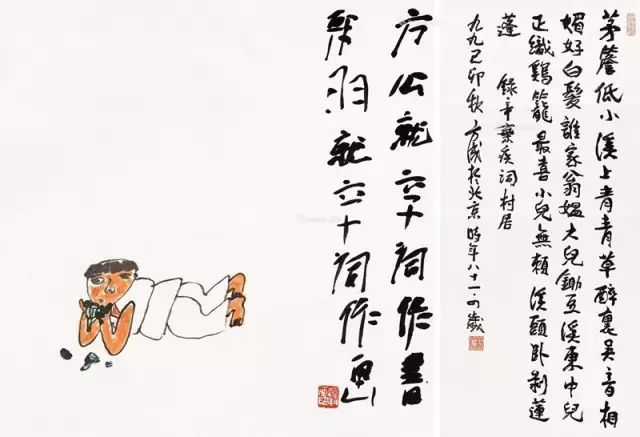 茅簷低小溪上青青草醉裏吳音相
媚好白髮誰家翁媼大兒鋤豆溪東中兒
正織鷄籠最喜小兒無賴溪頭卧剥蓮
蓬 錄辛棄疾詞村居
九九己卯秋方成於北京時年八十一歲
方公就辛詞作書
韓羽就辛詞作画